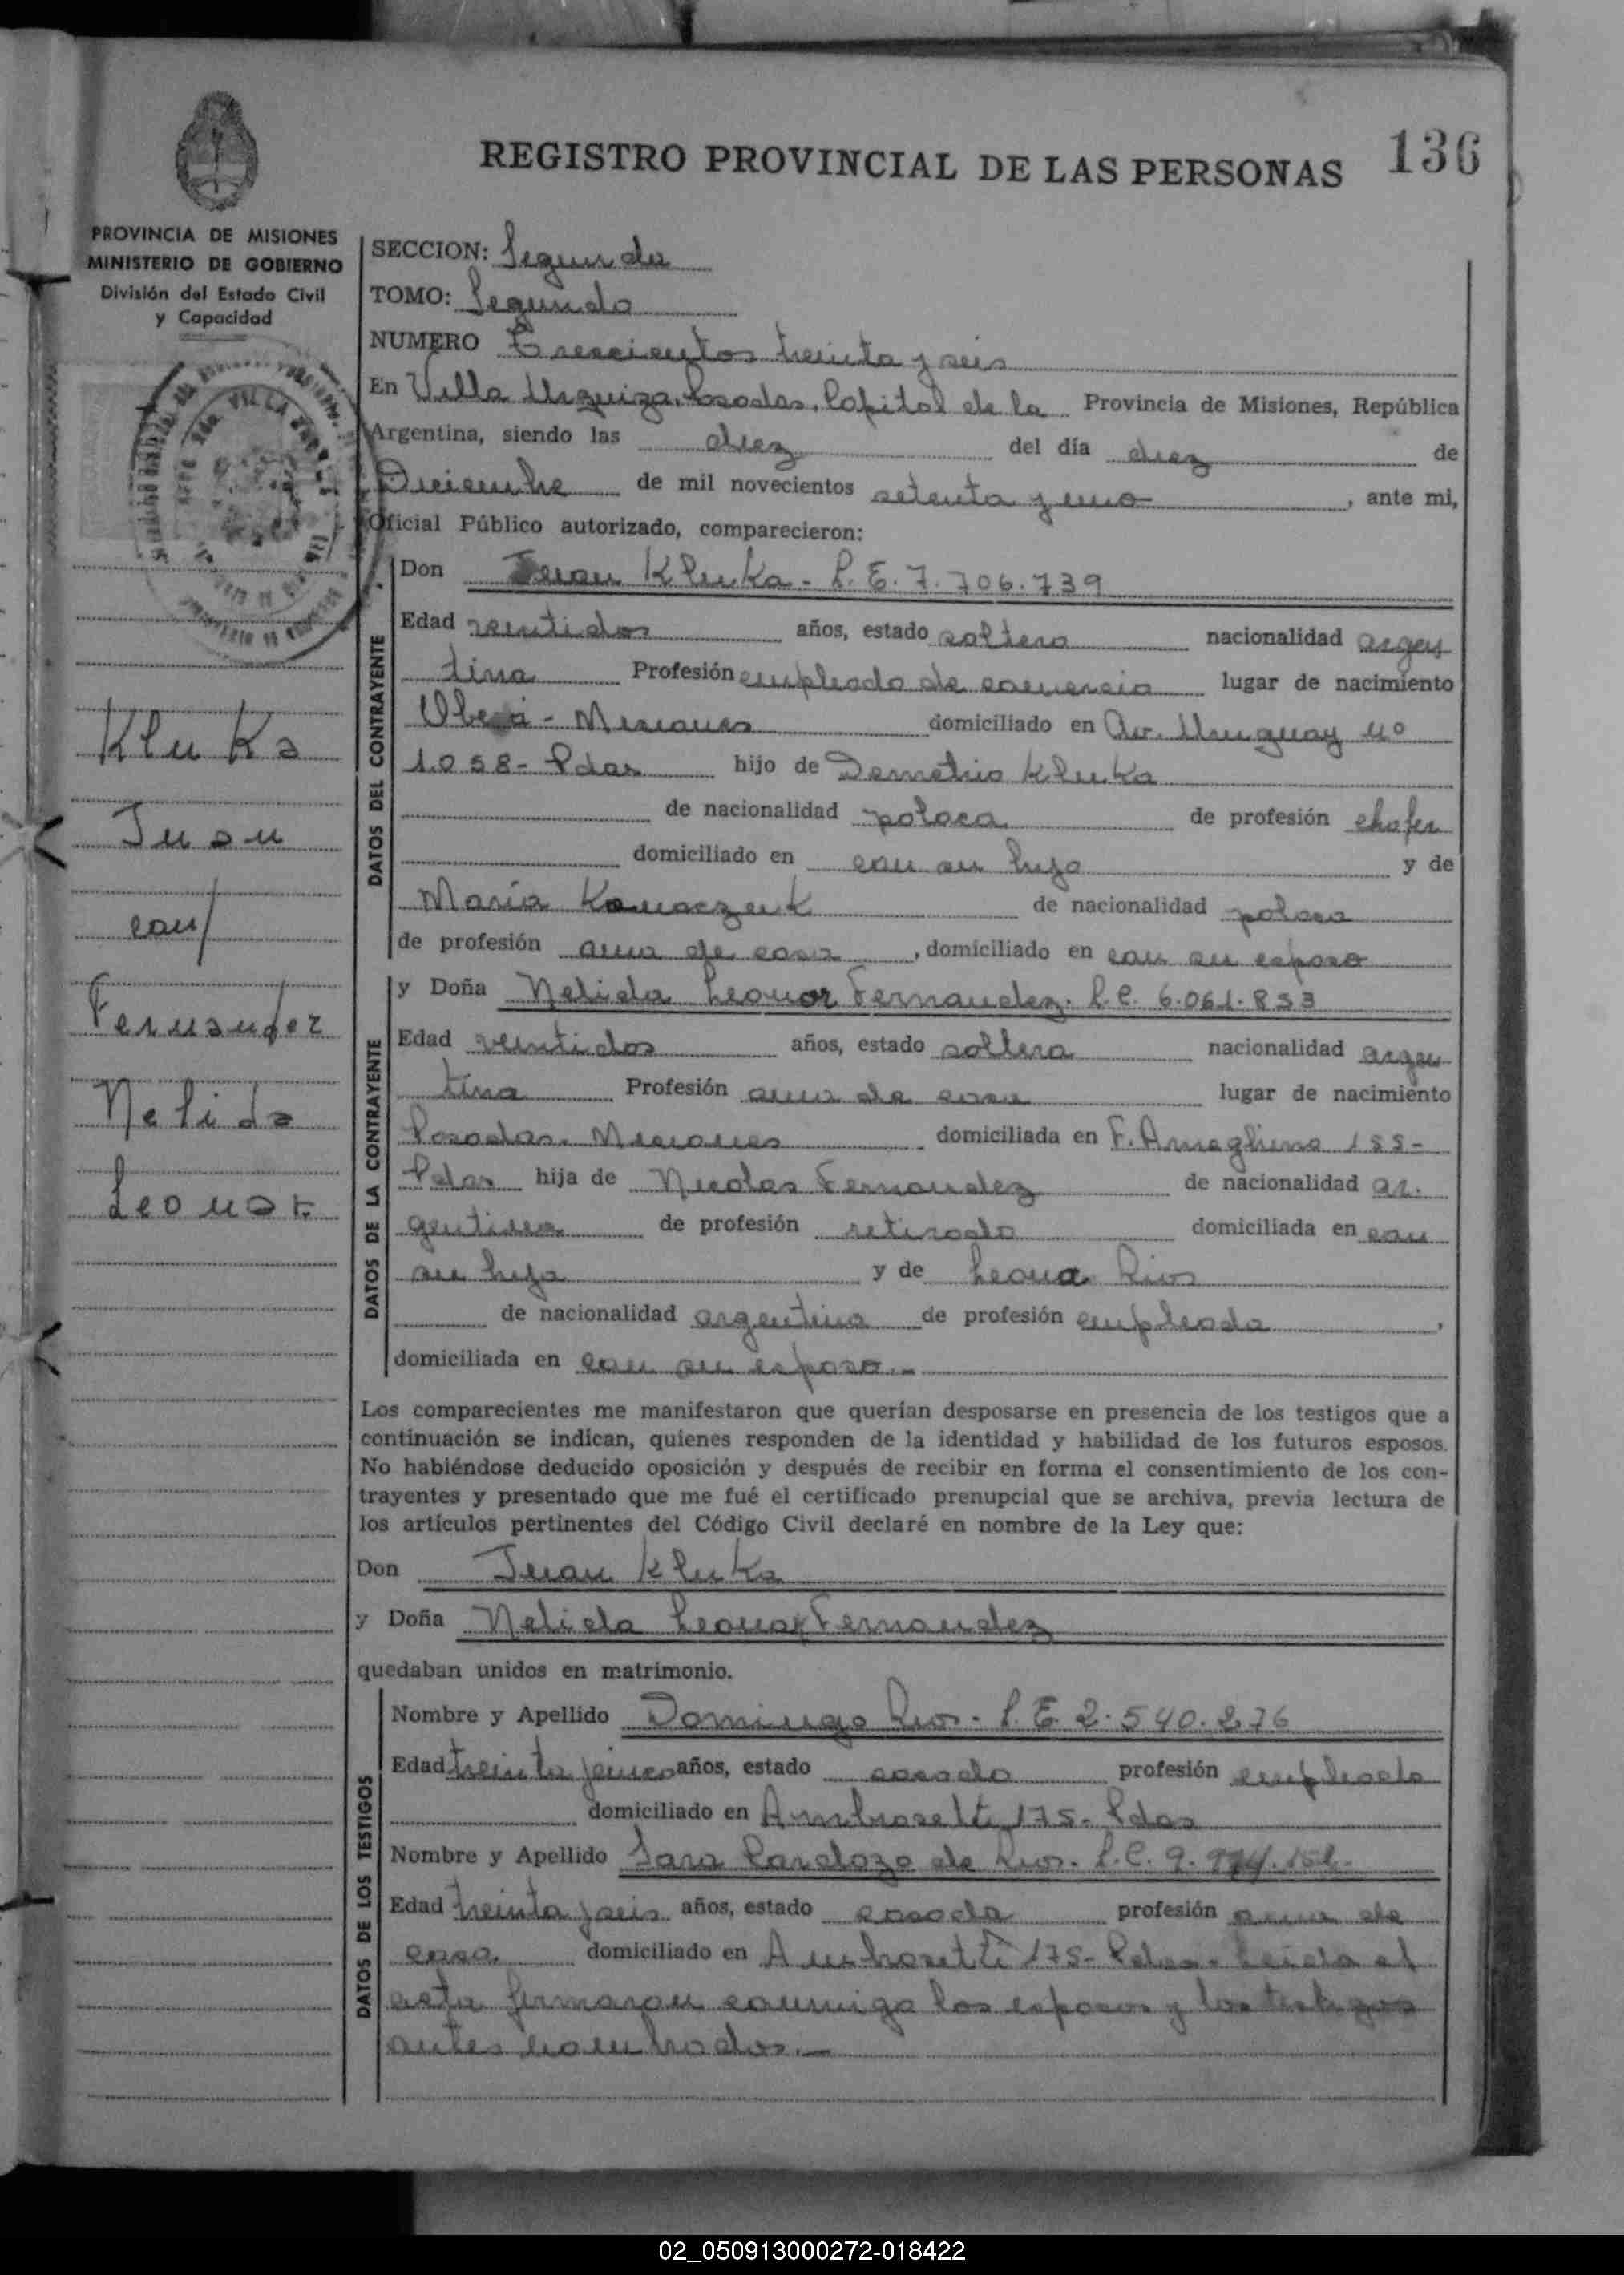 REGISTRO PROVINCIAL DE LAS PERSONAS 136
PROVINCIA DE MISIONES
MINISTERIO DE GOBIERNO
División del Estado Civil
y Capacidad
Kluka
Juan
con/
Fernandez
Nelida
Leonor
SECCION: Segunda
TOMO: Segundo
NUMERO Trescientos treinta y seis
En Villa Urquiza, Posadas, Capital de la Provincia de Misiones, República
Argentina, siendo las diez del día diez de
Diciembre de mil novecientos setenta y uno, ante mi,
Oficial Público autorizado, comparecieron:
DATOS DEL CONTRAYENTE
Don Juan Kluka - L.E. 7.706.739
Edad veintidos años, estado soltero nacionalidad argen
tina Profesión empleado de comercio lugar de nacimiento
Oberá - Misiones domiciliado en Av. Uruguay nº
1058 - Pdas hijo de Demetrio Kluka
de nacionalidad polaca de profesión chofer
domiciliado en con su hijo y de
María de nacionalidad polaca
de profesión ama de casa, domiciliado en con su esposo
DATOS DE LA CONTRAYENTE
y Doña Nelida Leonor Fernandez. L.C. 6.061.833
Edad veintidos años, estado soltera nacionalidad argen
tina Profesión ama de casa lugar de nacimiento
Posadas. Misiones domiciliada en F. Ameghino 155-
Pdas hija de Nicolas Fernandez de nacionalidad ar.
gentina de profesión retirado domiciliada en con
su hija y de Leona Rios
de nacionalidad argentina de profesión empleada,
domiciliada en con su esposo.-
Los comparecientes me manifestaron que querían desposarse en presencia de los testigos que a
continuación se indican, quienes responden de la identidad y habilidad de los futuros esposos.
No habiéndose deducido oposición y después de recibir en forma el consentimiento de los con-
trayentes y presentado que me fué el certificado prenupcial que se archiva, previa lectura de
los artículos pertinentes del Código Civil declaré en nombre de la Ley que:
Don Juan Kluka
y Doña Nelida Leonor Fernandez
quedaban unidos en matrimonio.
DATOS DE LOS TESTIGOS
Nombre y Apellido Domingo Rios - L.E. 2.540.276
Edad treinta y cinco años, estado casado profesión empleado
domiciliado en Ambrosetti 175- Pdas
Nombre y Apellido Sara Cardozo de Rios. L.C. 9.
Edad treinta y seis años, estado casada profesión ama de
casa domiciliado en Ambrosetti 175- Pdas - Leida el
acta firmaron conmigo los esposos y los testigos
antes nombrados.-
02_050913000272-018422